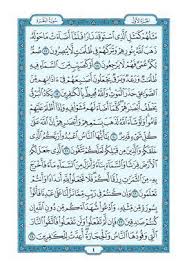 الجزء الأول
سورة البقرة
مَثَلُهُمْ كَمَثَلِ ٱلَّذِى ٱسْتَوْقَدَ نَارًا فَلَمَّآ أَضَآءَتْ مَا حَوْلَهُۥ
ذَهَبَ ٱللَّهُ بِنُورِهِمْ وَتَرَكَهُمْ فِى ظُلُمَٰتٍ لَّا يُبْصِرُونَ ١٧
صُمٌّۢ بُكْمٌ عُمْىٌ فَهُمْ لَا يَرْجِعُونَ ١٨ أَوْ كَصَيِّبٍ مِّنَ ٱلسَّمَآءِ
فِيهِ ظُلُمَٰتٌ وَرَعْدٌ وَبَرْقٌ يَجْعَلُونَ أَصَٰبِعَهُمْ فِىٓ ءَاذَانِهِم
مِّنَ ٱلصَّوَٰعِقِ حَذَرَ ٱلْمَوْتِ وَٱللَّهُ مُحِيطٌۢ بِٱلْكَٰفِرِينَ ١٩ يَكَادُ ٱلْبَرْقُ
يَخْطَفُ أَبْصَٰرَهُمْ كُلَّمَآ أَضَآءَ لَهُم مَّشَوْا۟ فِيهِ وَإِذَآ أَظْلَمَ عَلَيْهِمْ
قَامُوا۟ وَلَوْ شَآءَ ٱللَّهُ لَذَهَبَ بِسَمْعِهِمْ وَأَبْصَٰرِهِمْ إِنَّ ٱللَّهَ عَلَىٰ
كُلِّ شَىْءٍ قَدِيرٌ ٢٠ يَٰٓأَيُّهَا ٱلنَّاسُ ٱعْبُدُوا۟ رَبَّكُمُ ٱلَّذِى خَلَقَكُمْ
وَٱلَّذِينَ مِن قَبْلِكُمْ لَعَلَّكُمْ تَتَّقُونَ ٢١ ٱلَّذِى جَعَلَ لَكُمُ ٱلْأَرْضَ
فِرَٰشًا وَٱلسَّمَآءَ بِنَآءً وَأَنزَلَ مِنَ ٱلسَّمَآءِ مَآءً فَأَخْرَجَ بِهِۦ مِنَ
ٱلثَّمَرَٰتِ رِزْقًا لَّكُمْ فَلَا تَجْعَلُوا۟ لِلَّهِ أَندَادًا وَأَنتُمْ
تَعْلَمُونَ ٢٢ وَإِن كُنتُمْ فِى رَيْبٍ مِّمَّا نَزَّلْنَا عَلَىٰ عَبْدِنَا فَأْتُوا۟
بِسُورَةٍ مِّن مِّثْلِهِۦ وَٱدْعُوا۟ شُهَدَآءَكُم مِّن دُونِ ٱللَّهِ إِن
كُنتُمْ صَٰدِقِينَ ٢٣ فَإِن لَّمْ تَفْعَلُوا۟ وَلَن تَفْعَلُوا۟ فَٱتَّقُوا۟ ٱلنَّارَ
ٱلَّتِى وَقُودُهَا ٱلنَّاسُ وَٱلْحِجَارَةُ أُعِدَّتْ لِلْكَٰفِرِينَ ٢٤
٤